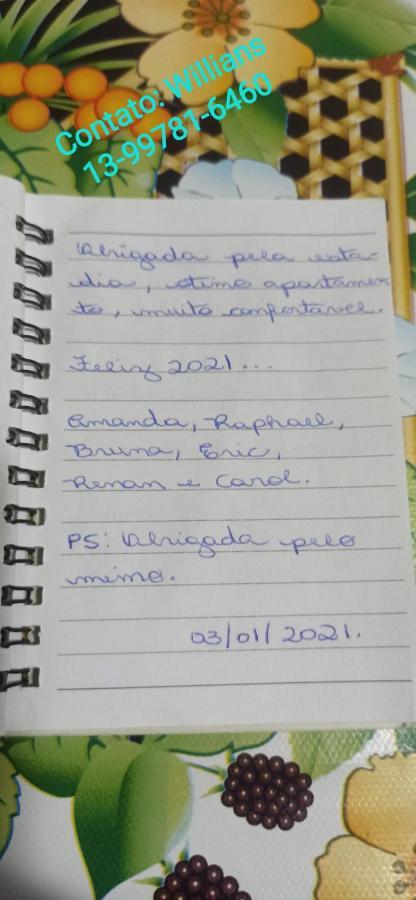 Contato: Willians
13-99781-6460
Obrigada pela esta-
dia, otimo apartamen
to, muito confortavel.
Feliz 2021...
Amanda, Raphael,
Bruna, Eric,
Renan e Carol.
PS: Obrigada pelo
mimo.
03/01/2021.